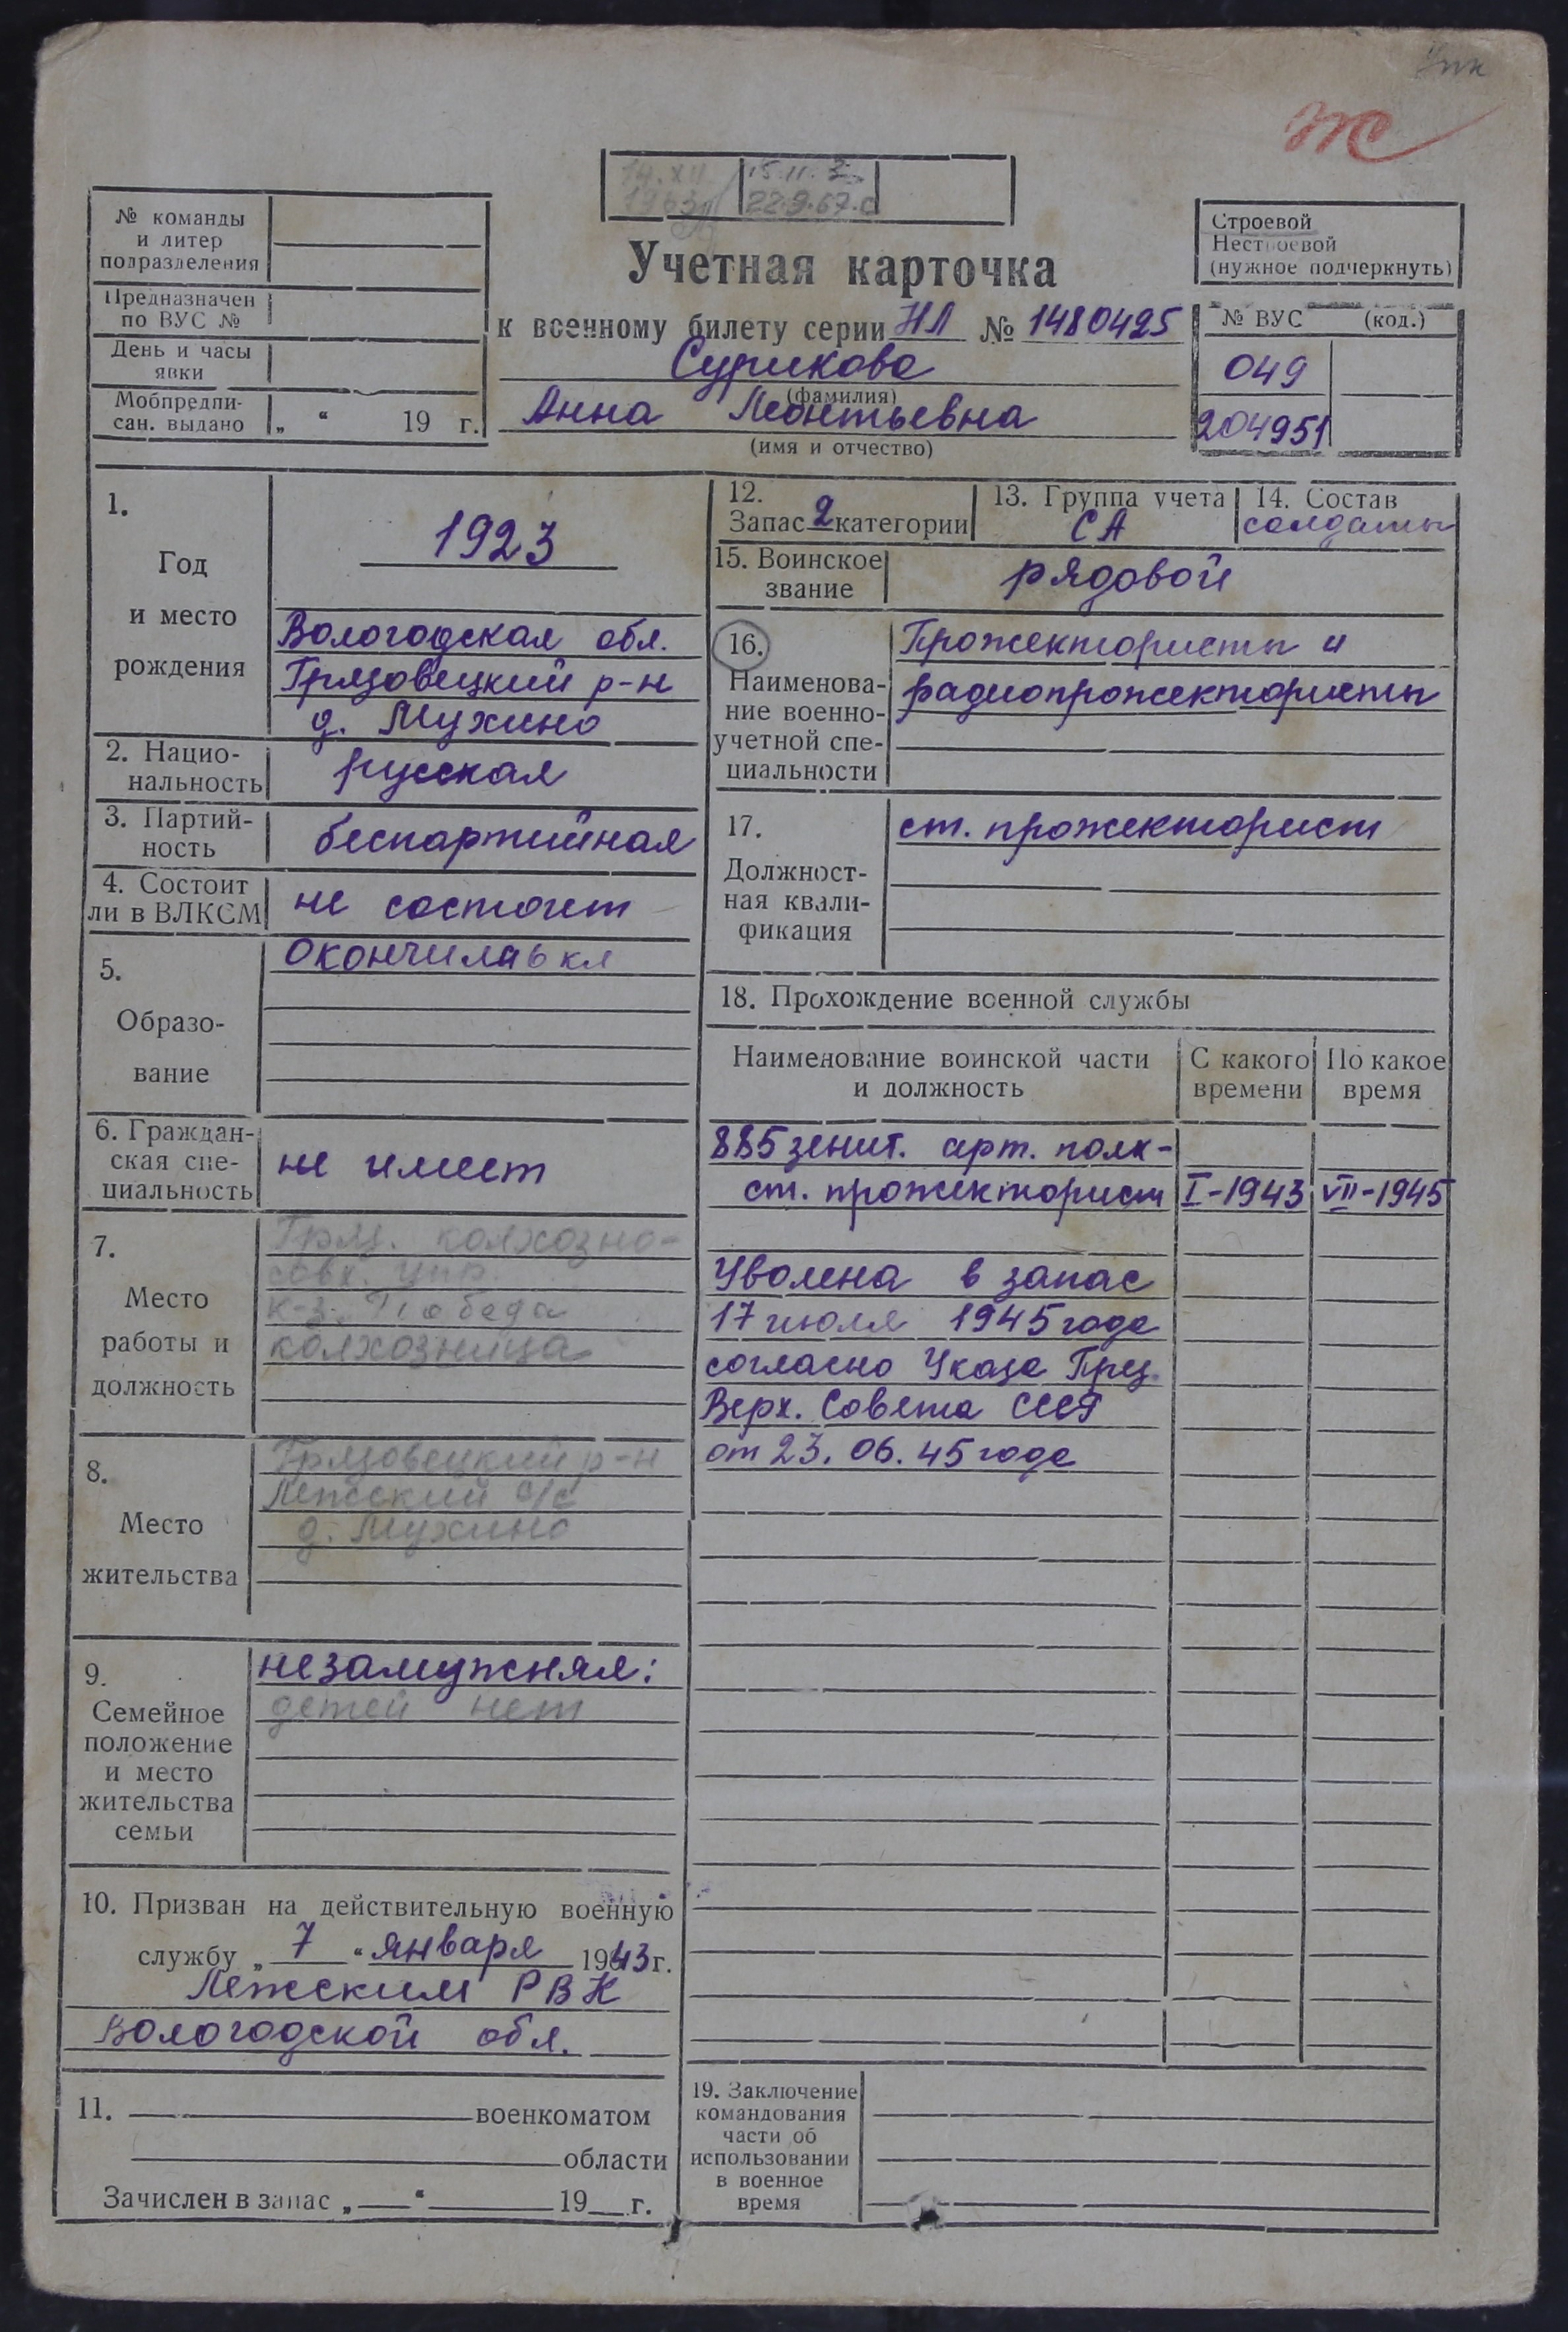 Упк
Ж
14.XII 1963 15.11. 22.9.67.
№ команды
и литер
подразделения
Предназначен
по ВУС №
День и часы
явки
Мобпредпи-
сан. выдано „ “ 19 г.
Учетная карточка
к военному билету серии НЛ № 1480425
Сурикова
(фамилия)
Анна Леонтьевна
(имя и отчество)
Строевой
Нестроевой
(нужное подчеркнуть)
№ ВУС (код.)
049
204951
1.
Год
и место
рождения
1923
Вологодская обл.
Грязовецкий р-н
д. Мухино
2. Нацио-
нальность
русская
3. Партий-
ность
беспартийная
4. Состоит
ли в ВЛКСМ
не состоит
5.
Образо-
вание
Окончила 6 кл
6. Граждан-
ская спе-
циальность
не имеет
7.
Место
работы и
должность
Гряз. колхозно-
совх. упр.
к-з. Победа
колхозница
8.
Место
жительства
Грязовецкий р-н
Лежский с/с
д. Мухино
9.
Семейное
положение
и место
жительства
семьи
незамужняя:
детей нет
10. Призван на действительную военную
службу „ 7 “ января 1943 г.
Лежским РВК
Вологодской обл.
11. военкоматом
области
Зачислен в запас „ “ 19 г.
12.
Запас 2 категории
13. Группа учета
СА
14. Состав
солдаты
15. Воинское
звание
рядовой
16.
Наименова-
ние военно-
учетной спе-
циальности
Прожектористы и
радиопрожектористы
17.
Должност-
ная квали-
фикация
ст. прожекторист
18. Прохождение военной службы
Наименование воинской части
и должность
С какого
времени
По какое
время
885 зенит. арт. полк-
ст. прожекторист I-1943 VII-1945
Уволена в запас
17 июля 1945 года
согласно Указа През.
Верх. Совета СССР
от 23.06.45 года
19. Заключение
командования
части об
использовании
в военное
время